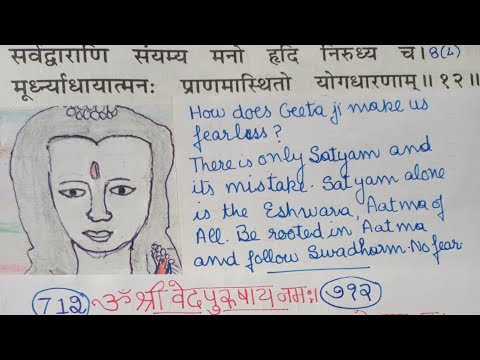 सर्वद्वाराणि संयम्य मनो हृदि निरुध्य च। 8(L)
मूर्ध्न्याधायात्मनः प्राणमास्थितो योगधारणाम् ॥ १२ ॥
How does Geeta ji make us
fearless?
There is only Satyam and
its mistake. Satyam alone
is the Eshwara, Aatma of
All. Be rooted in Aatma
and follow Swadharm. No fear
712 ॐ श्री वेदपुरुषाय नमः। ७१२